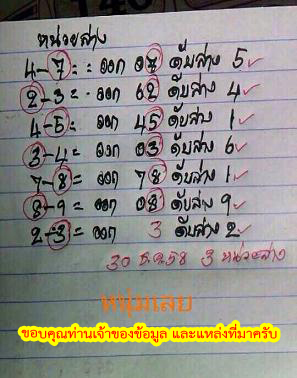 หน่วยล่าง
4-7= = ออก 07 ดับล่าง 5
2-3= = ออก 62 ดับล่าง 4
4-5= ออก 45 ดับล่าง 1
3-4= ออก 03 ดับล่าง 6
7-8= ออก 78 ดับล่าง 1
8-9= ออก 08 ดับล่าง 9
2-3= ออก 3 ดับล่าง 2
30 ธ.ค.58 3 หน่วยล่าง
หนุ่มเลย
ขอบคุณท่านเจ้าของข้อมูล และแหล่งที่มาครับ